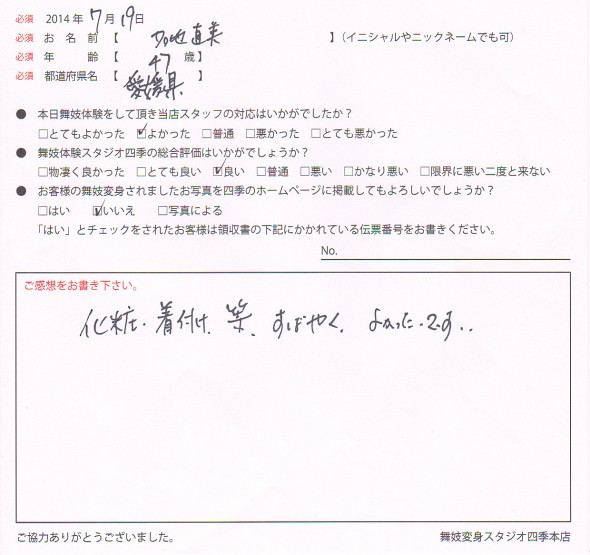 必須 2014年 7月 19日
必須 お 名 前 【 直美 】(イニシャルやニックネームでも可)
必須 年 齢 【 47 歳】
必須 都道府県名 【 愛媛県 】
● 本日舞妓体験をして頂き当店スタッフの対応はいかがでしたか？
□とてもよかった ☑よかった □普通 □悪かった □とても悪かった
● 舞妓体験スタジオ四季の総合評価はいかがでしょうか？
□物凄く良かった □とても良い ☑良い □普通 □悪い □かなり悪い □限界に悪い二度と来ない
● お客様の舞妓変身されましたお写真を四季のホームページに掲載してもよろしいでしょうか？
□はい ☑いいえ □写真による
「はい」とチェックをされたお客様は領収書の下記にかかれている伝票番号をお書きください。
No.
ご感想をお書き下さい。
化粧、着付け、等、すばやく、よかったです..
ご協力ありがとうございました。 舞妓変身スタジオ四季本店